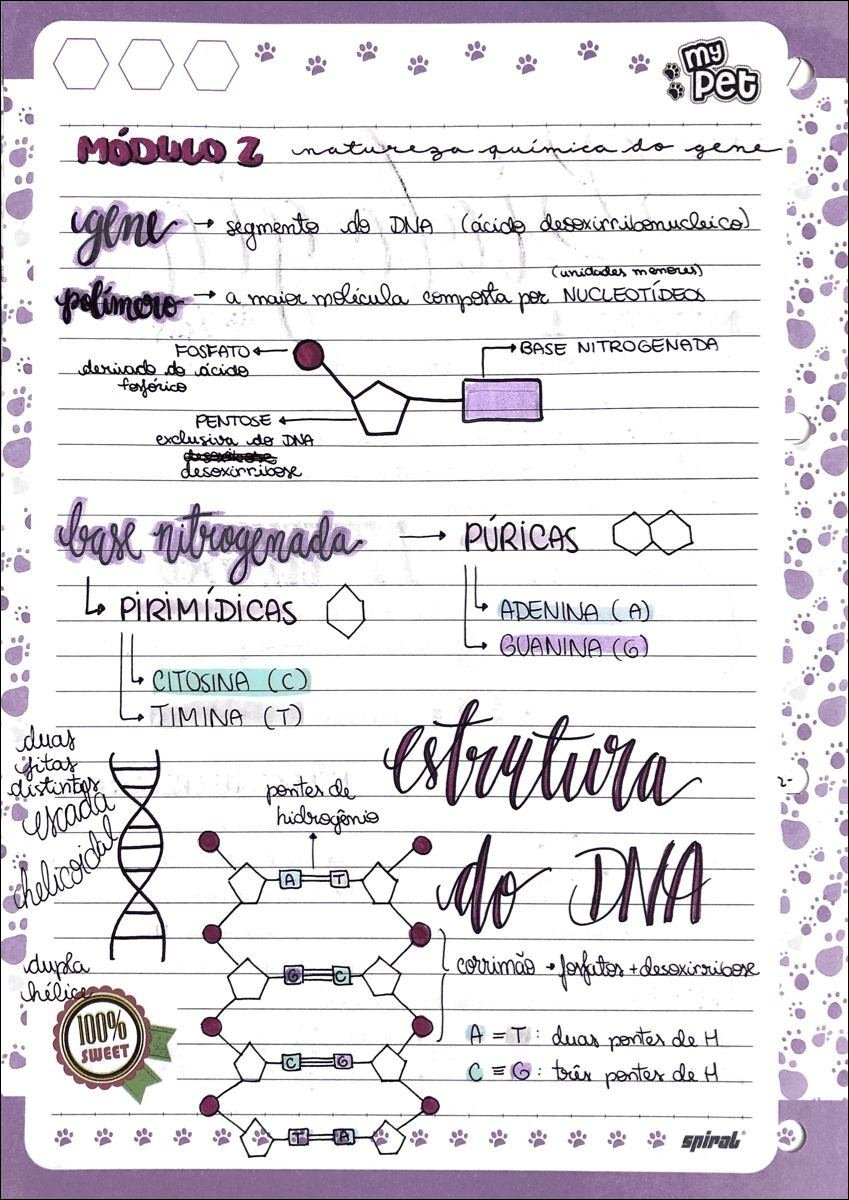 my
pet
MÓDULO 2 natureza química do gene
gene → segmento do DNA (ácido desoxirribonucleico)
(unidades menores)
polímero → a maior molécula composta por NUCLEOTÍDEOS
FOSFATO
derivado do ácido
fosfórico
BASE NITROGENADA
PENTOSE
exclusiva do DNA
desoxirribose
base nitrogenada → PÚRICAS
PIRIMÍDICAS
ADENINA (A)
GUANINA (G)
CITOSINA (C)
TIMINA (T)
estrutura
do DNA
duas
fitas
distintas
escada
helicoidal
dupla
hélice
pontes de
hidrogênio
A T
G C
C G
T A
corrimão → fosfatos + desoxirribose
A = T : duas pontes de H
C ≡ G : três pontes de H
100%
SWEET
spiral®